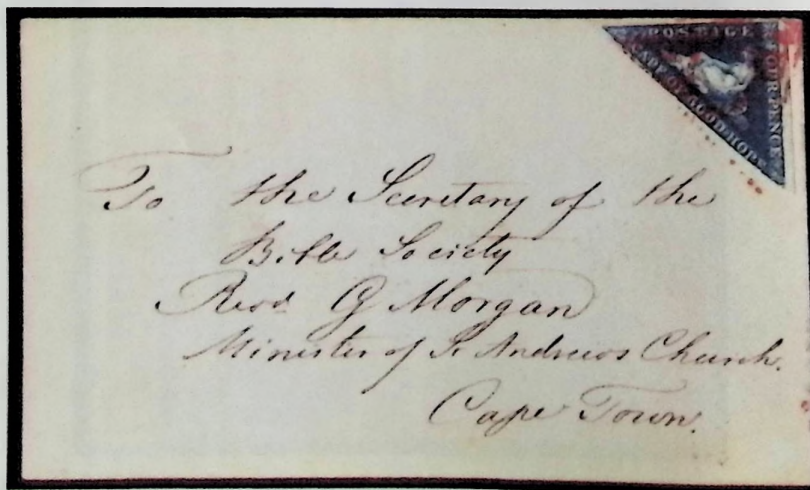 POSTAGE
FOUR PENCE
CAPE OF GOOD HOPE
To the Secretary of the
Bible Society
Revd G Morgan
Minister of St Andrews Church.
Cape Town.